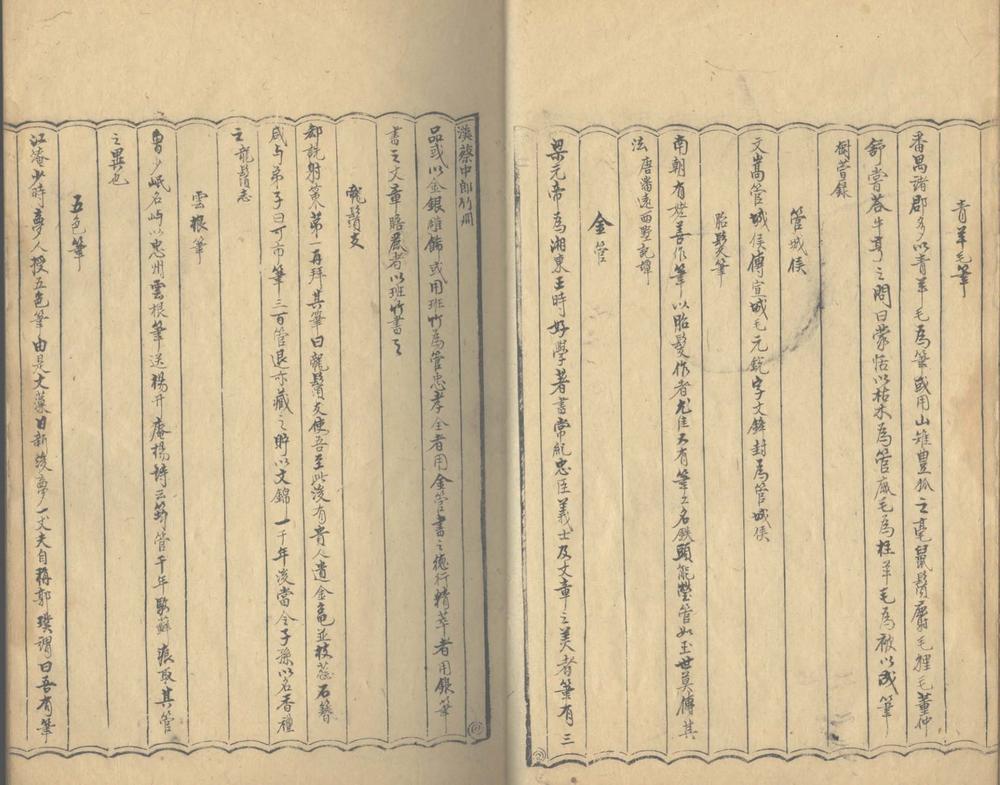 青羊毛筆
番禺諸郡多以青羊毛為筆或用山雉豊狐之毫鼠鬚麝毛狸毛董仲
舒嘗答牛亨之問曰蒙恬以枯木為管鹿毛為柱羊毛為被以成筆
樹萱録
管城侯
文嵩管城侯傳宣城毛元銳字文鋒封為管城侯
胎髮筆
南朝有姥善作筆以胎髮作者尤佳又有筆工名鉄頭能瑩管如玉世莫傳其
法唐 遠西墅記譚
金管
梁元帝為湘東王時好學著書常紀忠臣義士及文章之美者筆有三
漢蔡中郎竹
品或以金銀雕飾或用班竹為管忠孝全者用金管書之德行精萃者用銀筆
書之文章贍麗者以班竹書之
龍鬚友
郄詵射策第一再拜其筆曰龍鬚友使吾至此後有貴人遺金亀並枝蕊石簪
咸与弟子曰可市筆三百管退亦藏之貯以文錦一千年後當令子孫以名香禮
之龍鬚志
雲根筆
曾少岷名屿以忠州雲根筆送楊升庵楊詩云筠管千年 蘚痕取其管
之異也
五色筆
江淹少時夢人授五色筆由是文藻日新後夢一丈夫自稱郭璞謂曰吾有筆